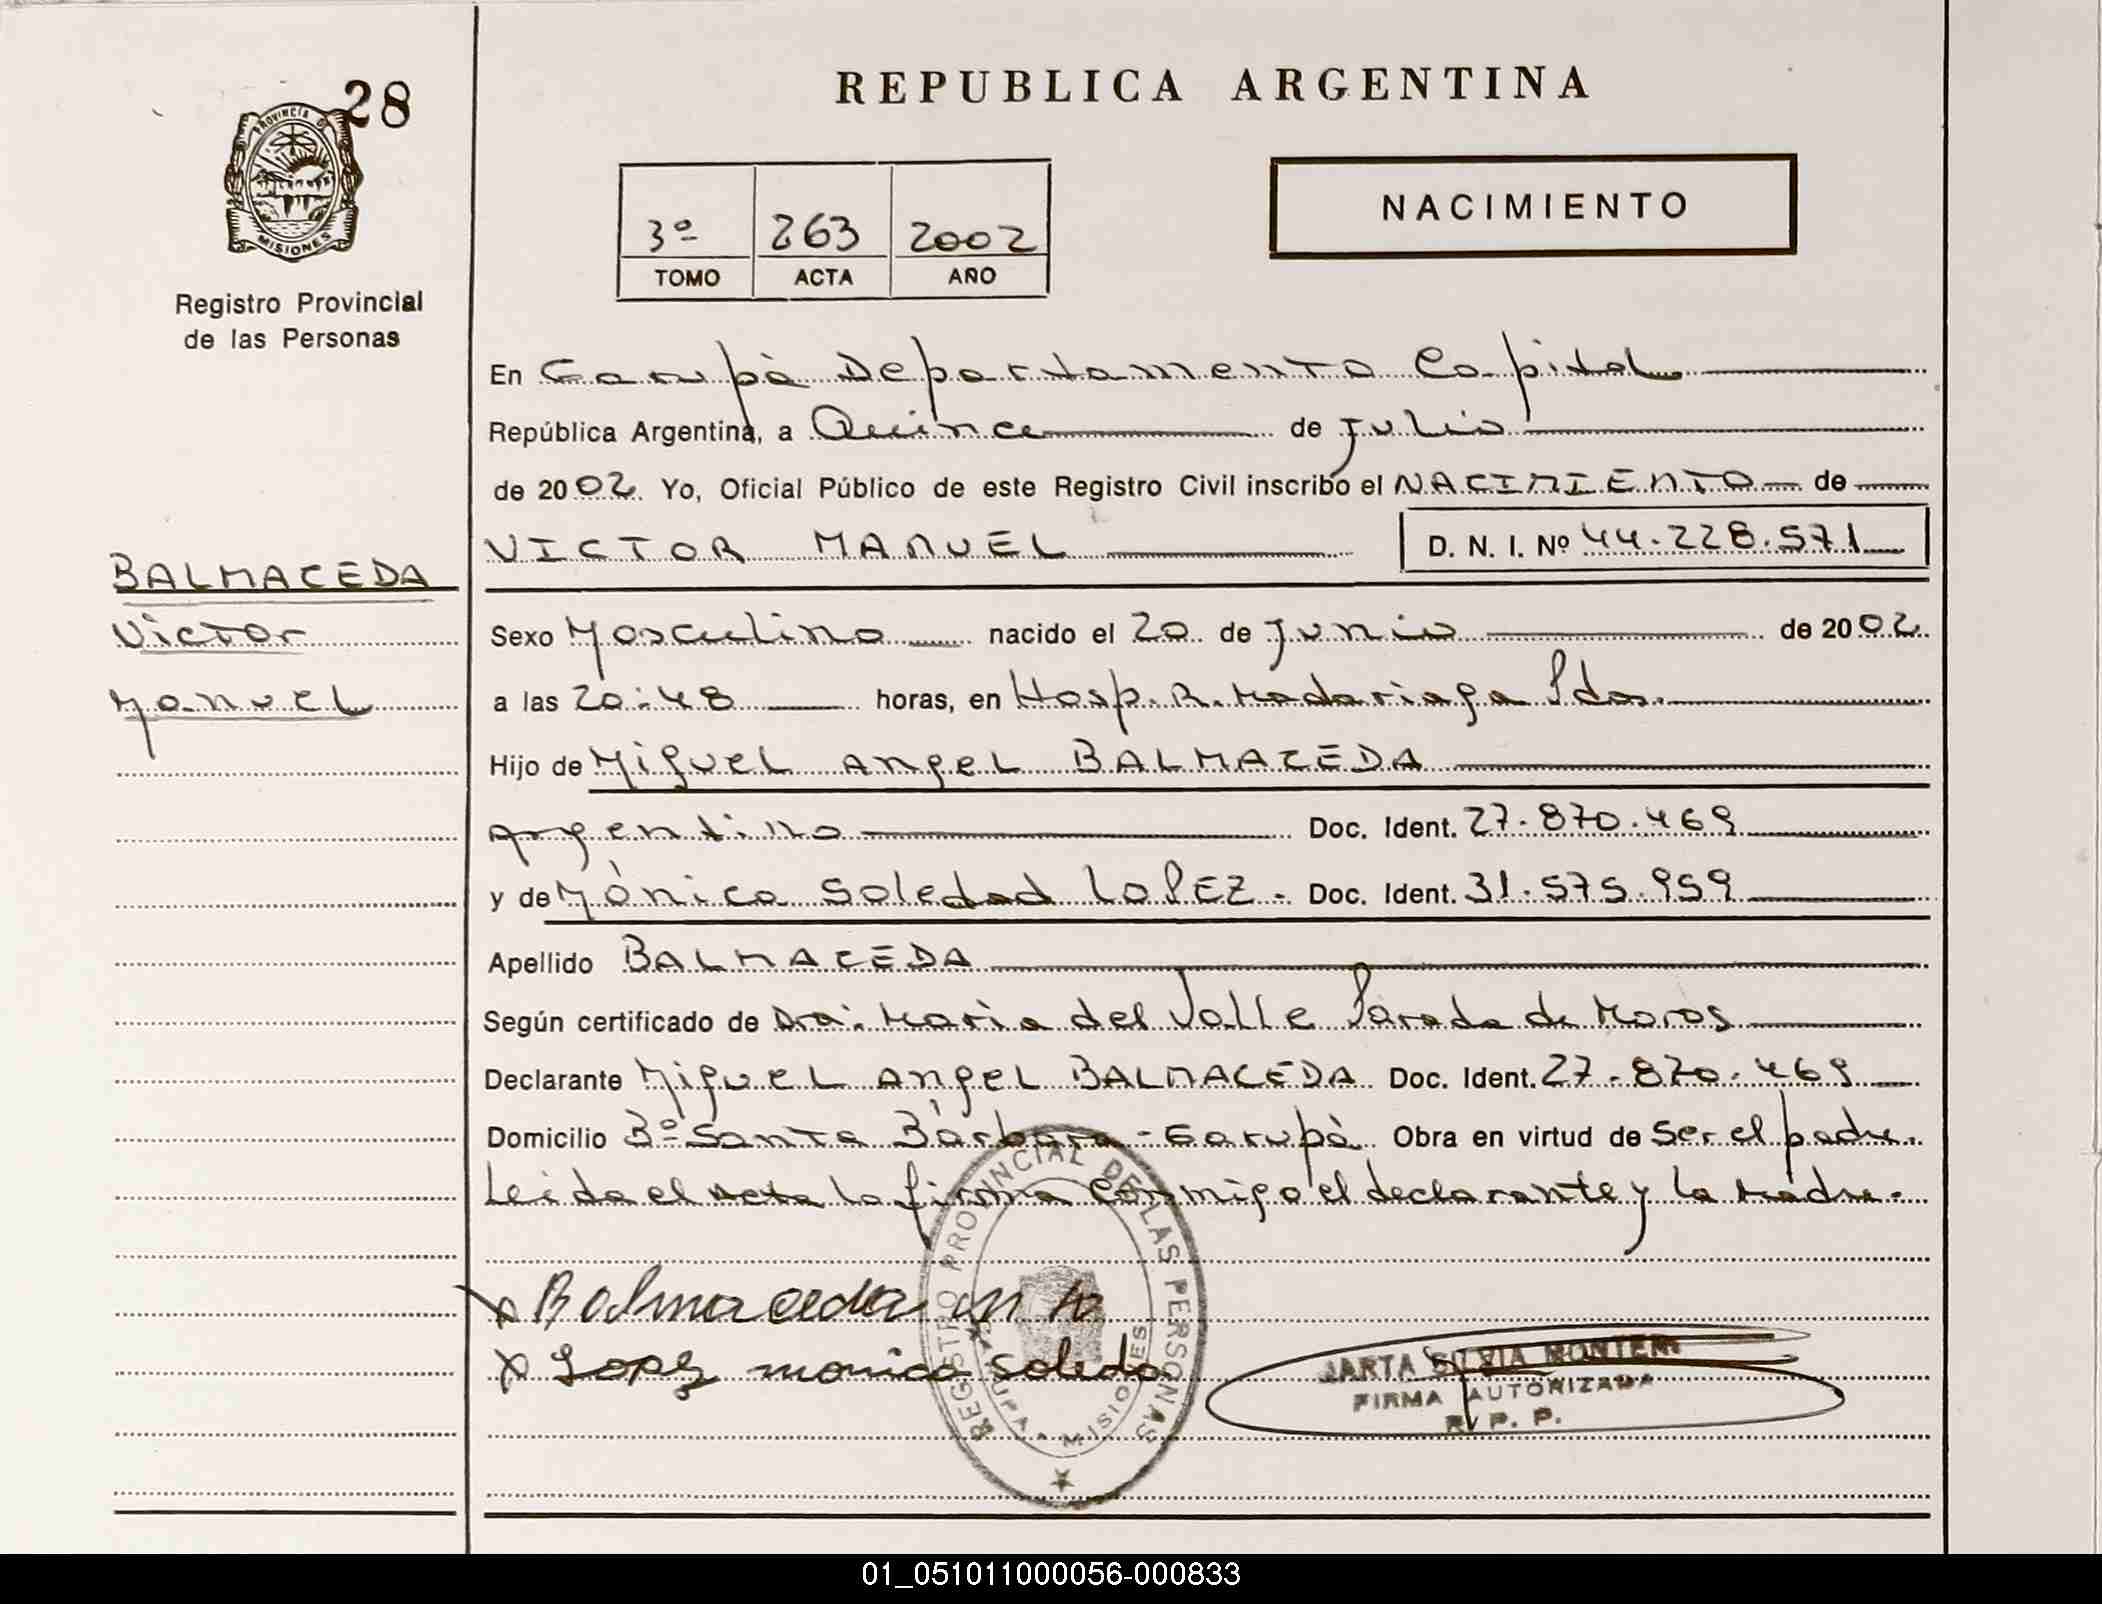 28
PROVINCIA DE
MISIONES
Registro Provincial
de las Personas
REPUBLICA ARGENTINA
3º 263 2002
TOMO ACTA AÑO
NACIMIENTO
En Garupà Departamento Capital
República Argentina, a Quince de Julio
de 2002. Yo, Oficial Público de este Registro Civil inscribo el NACIMIENTO de
VICTOR MANUEL D. N. I. Nº 44.228.571
BALMACEDA
Victor
Manuel
Sexo Masculino nacido el 20 de Junio de 2002.
a las 20:48 horas, en Hosp. R. Madariaga Pdas.
Hijo de Miguel Angel BALMACEDA
argentino Doc. Ident. 27.870.469
y de Mónica Soledad LOPEZ. Doc. Ident. 31.575.959
Apellido BALMACEDA
Según certificado de Dra. Maria del Valle Parada de Moros
Declarante Miguel Angel BALMACEDA Doc. Ident. 27.870.469
Domicilio Bº Santa Bárbara - Garupà Obra en virtud de Ser el padre.
Leida el acta la firma conmigo el declarante y la Madre.
Balmaceda
Lopez monica Soleda
REGISTRO PROVINCIAL DE LAS PERSONAS
MISIONES
SILVIA
FIRMA AUTORIZADA
R. P. P.
01_051011000056-000833